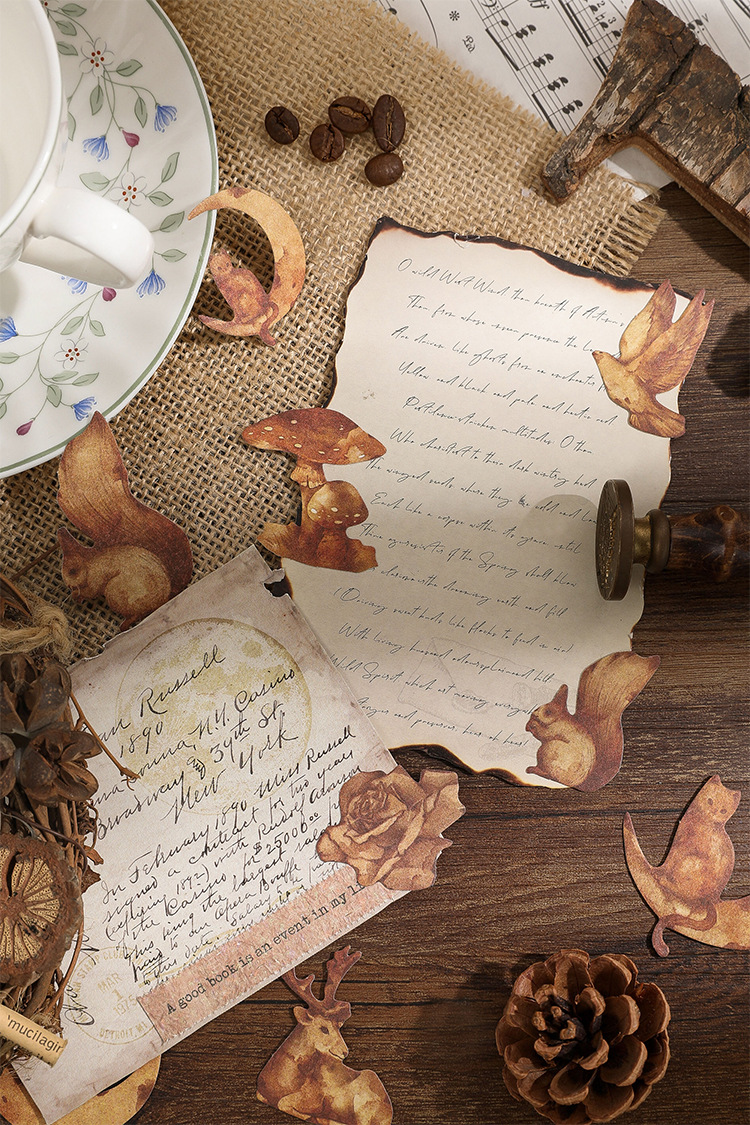 O wild West Wind, thou breath of Autumn's
Thou from whose unseen presence the
Are driven like ghosts from an
Yellow and black and pale and hectic red
Pestilence-stricken multitudes: O thou
Who chariotest to their dark wintry bed
The winged seeds where they lie cold and
Each like a corpse within its grave until
Thine azure sister of the Spring shall blow
clarion o'er the dreaming earth and fill
(Driving sweet buds like flocks to feed in air
With living hues and odours plain and hill
Wild Spirit which art moving
and preserver hear oh hear
Russell
1890
N.Y. Casino
Broadway & 39th St
New York
In February 1890 Miss Russell
signed a contract for two years
(expiring 1892) with Rudolf Aronson
of the Casino for $25000.00
this being the largest
paid to an Opera Bouffe
MAR
1
1975
DETROIT, MI
A good book is an event in my
mucilagin